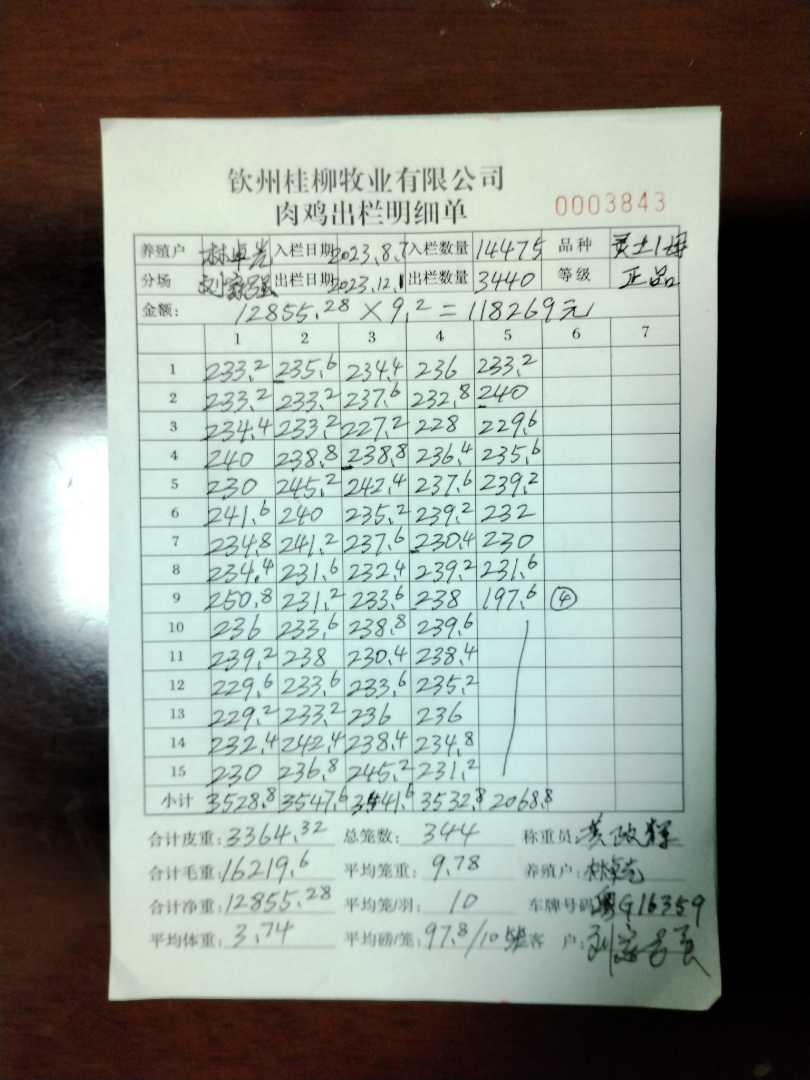 钦州桂柳牧业有限公司
肉鸡出栏明细单 0003843
养殖户 林卓光 入栏日期 2023.8.7 入栏数量 14475 品种 灵土1号
分场 刘家强 出栏日期 2023.12.1 出栏数量 3440 等级 正品
金额: 12855.28 × 9.2 = 118269元
1 2 3 4 5 6 7
1 233.2 235.6 234.4 236 233.2
2 233.2 233.2 237.6 232.8 240
3 234.4 233.2 227.2 228 229.6
4 240 238.8 238.8 236.4 235.6
5 230 245.2 242.4 237.6 239.2
6 241.6 240 235.2 239.2 232
7 234.8 241.2 237.6 230.4 230
8 234.4 231.6 232.4 239.2 231.6
9 250.8 231.2 233.6 238 197.6 ④
10 236 233.6 238.8 239.6
11 239.2 238 230.4 238.4
12 229.6 233.6 233.6 235.2
13 229.2 233.2 236 236
14 232.4 242.4 238.4 234.8
15 230 236.8 245.2 231.2
小计 3528.8 3547.6 3541.6 3532.8 2068.8
合计皮重: 3364.32 总笼数: 344 称重员: 黄政辉
合计毛重: 16219.6 平均笼重: 9.78 养殖户: 林卓光
合计净重: 12855.28 平均笼/羽: 10 车牌号码 粤G16359
平均体重: 3.74 平均磅/笼: 97.8/10 客 户: